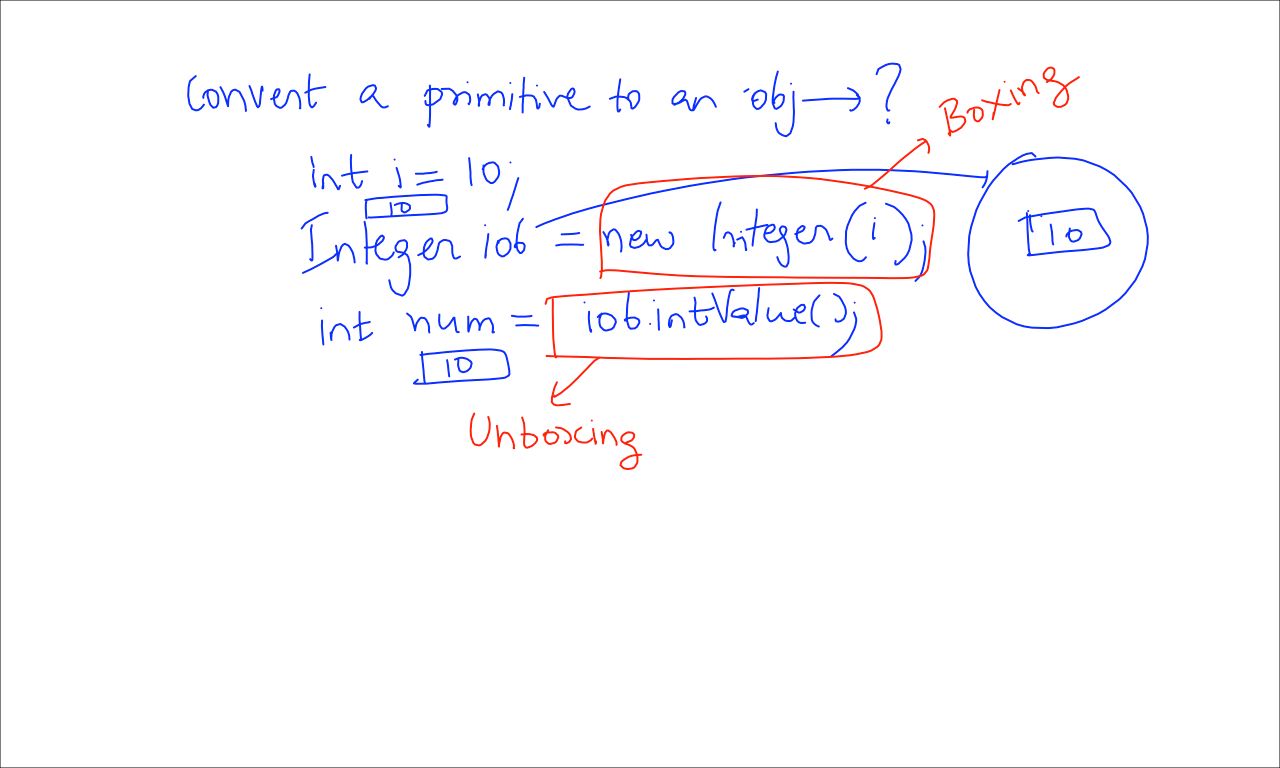 Convert a primitive to an obj → ?
Boxing
int i = 10;
10
Integer iob = new Integer(i);
10
int num = iob.intValue();
10
Unboxing